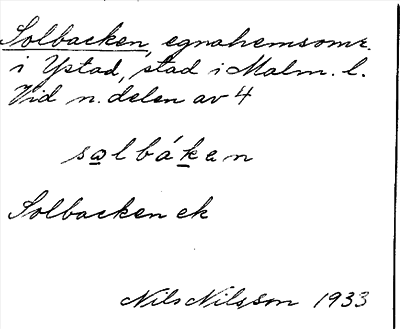 Solbacken, egnahemsomr.
i Ystad, stad i Malm. l.
Vid n. delen av 4
solbáken
Solbacken ek
Nils Nilsson 1933